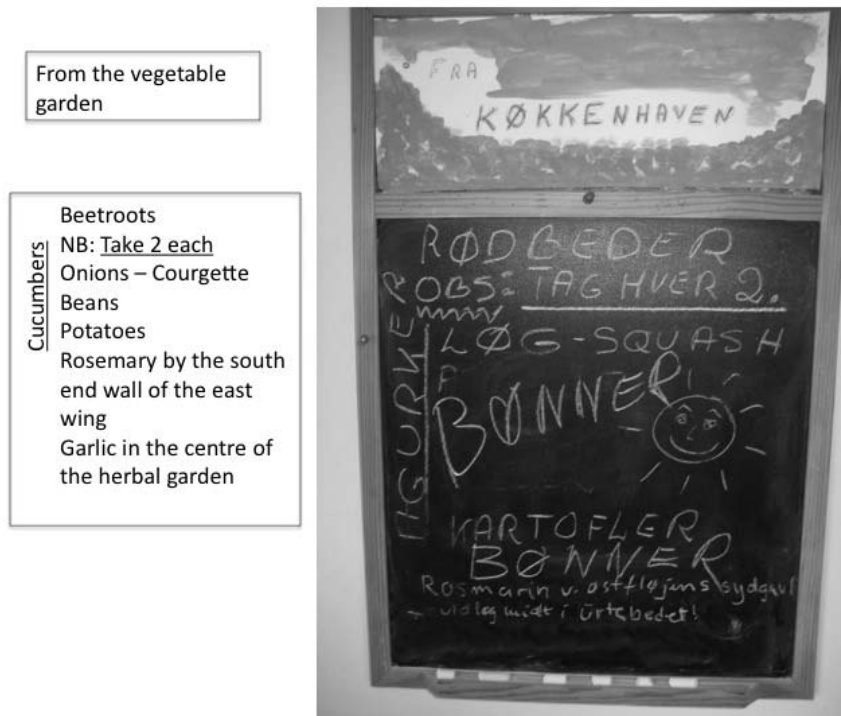 From the vegetable
garden
Cucumbers
Beetroots
NB: Take 2 each
Onions – Courgette
Beans
Potatoes
Rosemary by the south
end wall of the east
wing
Garlic in the centre of
the herbal garden
FRA
KØKKENHAVEN
RØDBEDER
OBS: TAG HVER 2.
AGURKER
LØG-SQUASH
BØNNER
KARTOFLER
BØNNER
Rosmarin v. østfløjens sydgavl
midt i urtebedet!